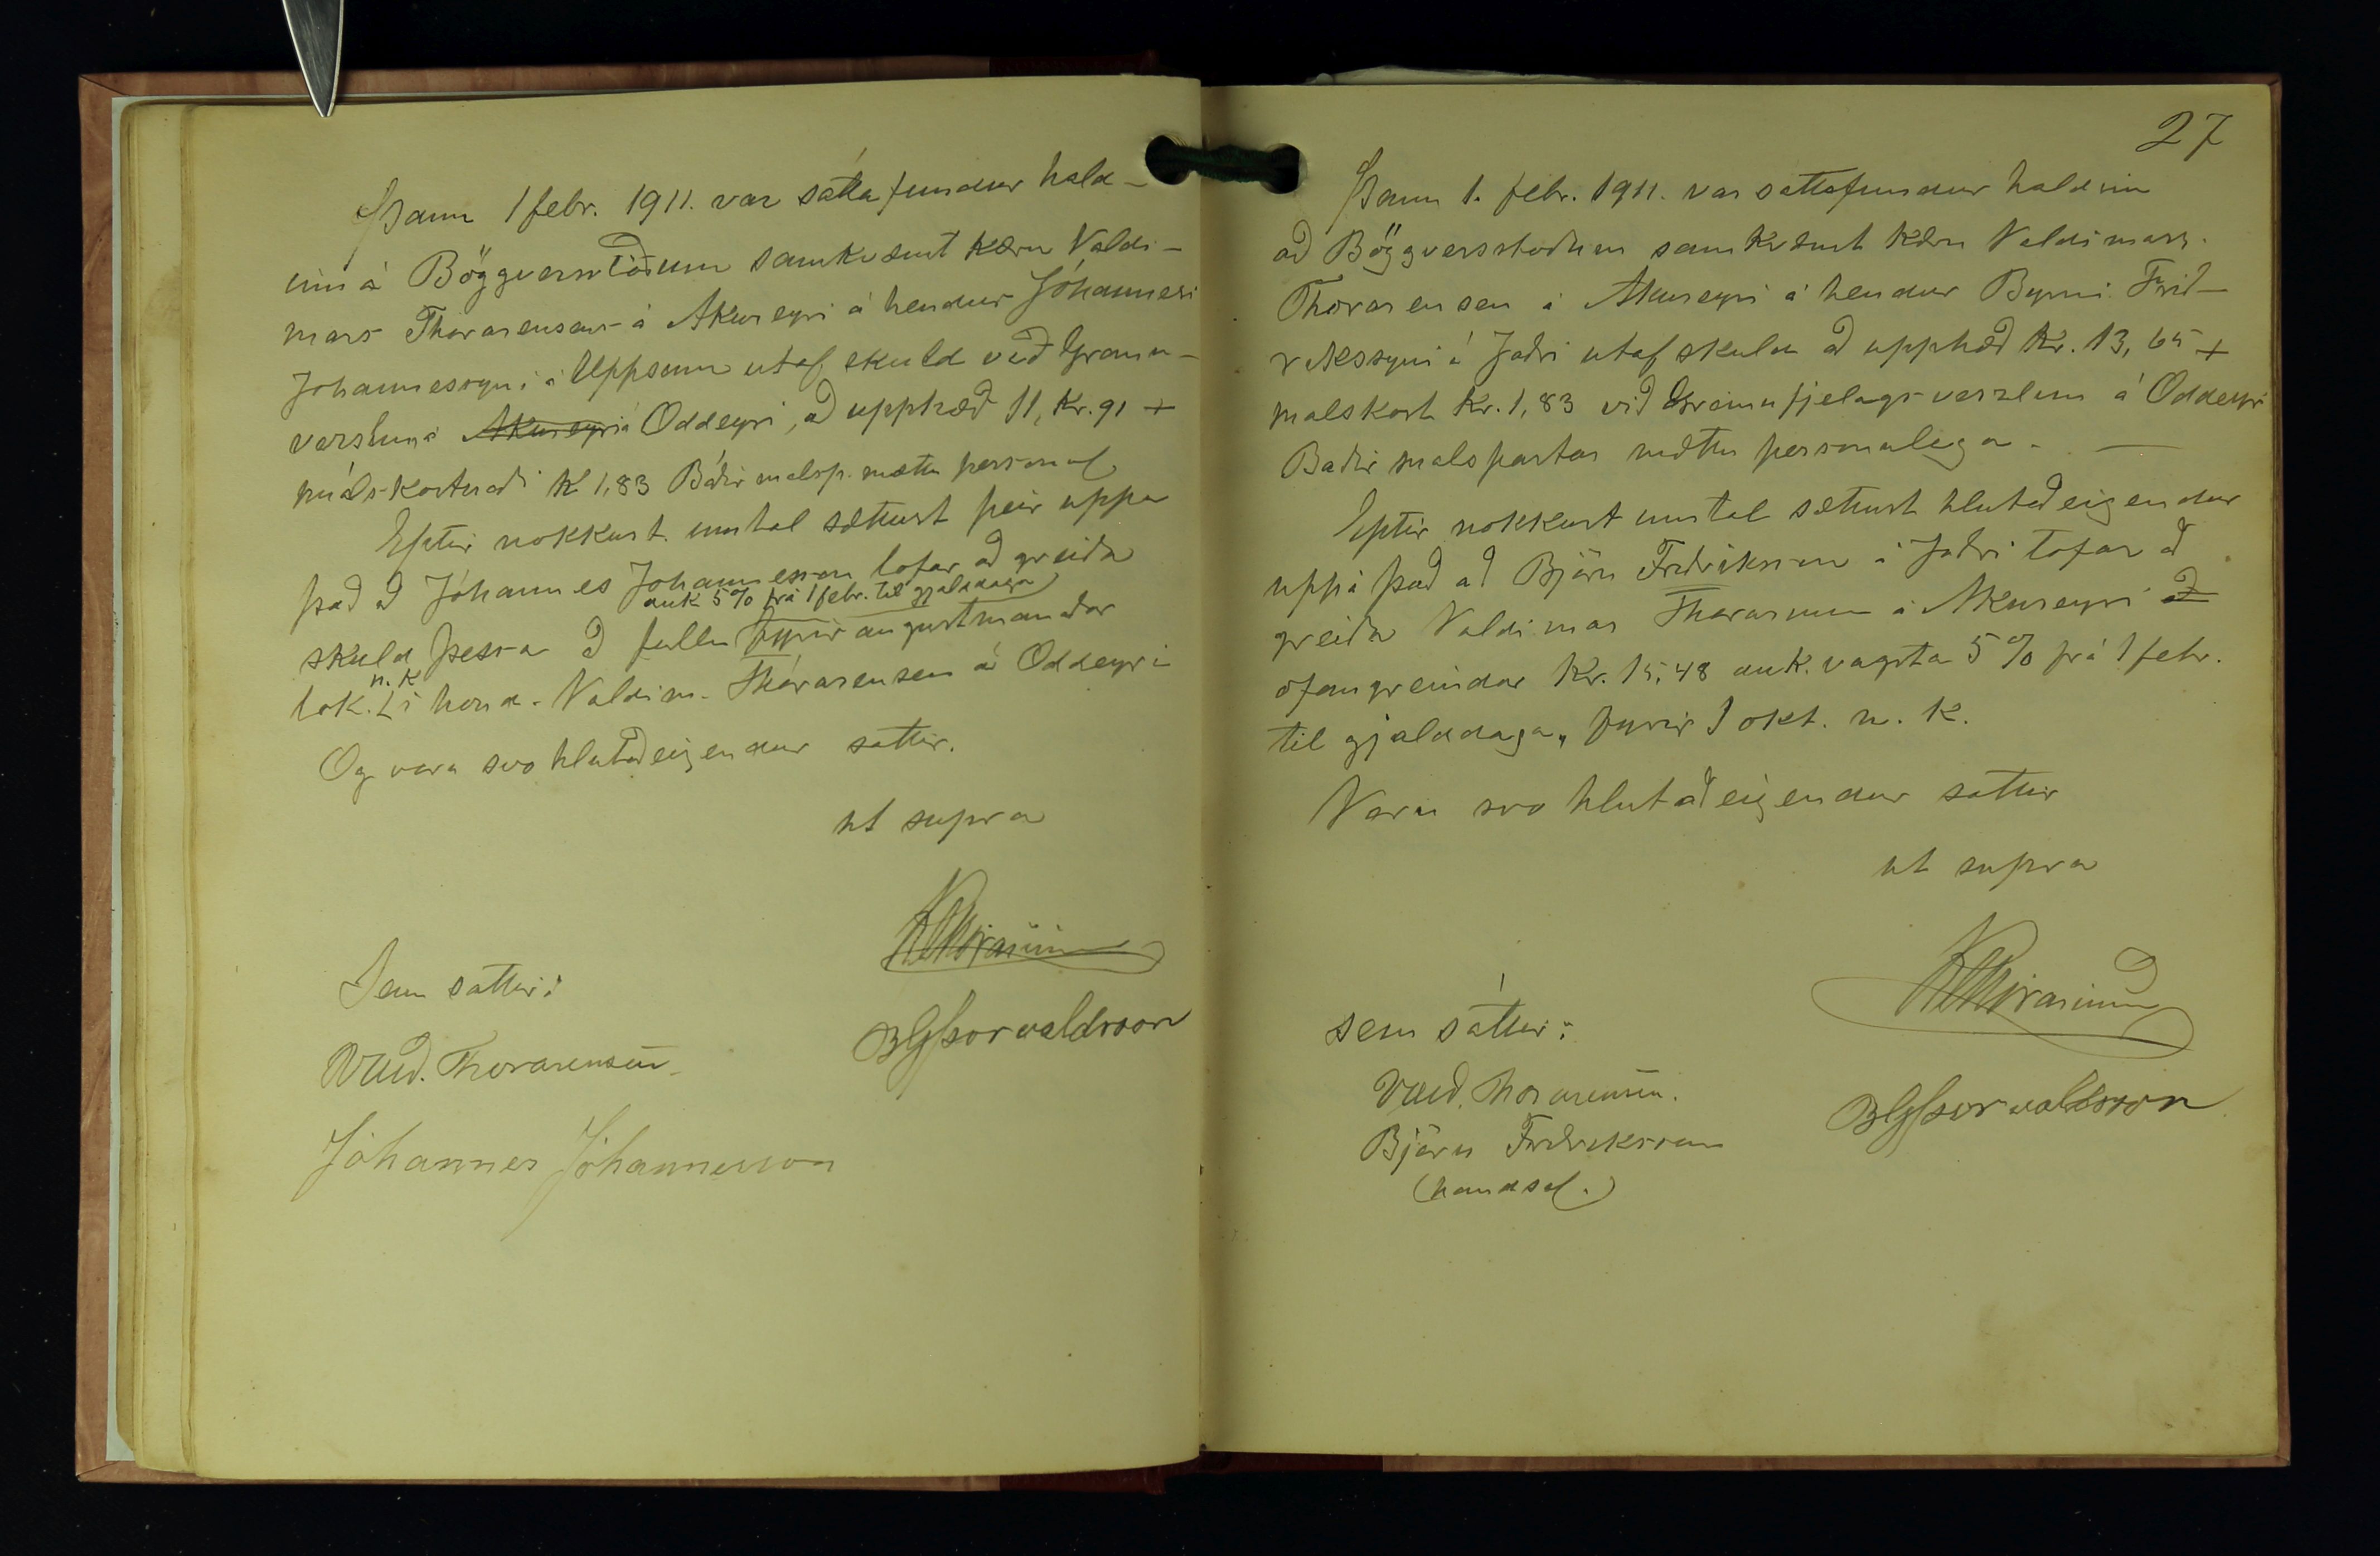 Þann 1 febr. 1911. var sátta fundur hald-
inn á Böggversstöðum samkvæmt kæru Valdi-
mars Thorarensens á Akureyri á hendur Jóhannesi
Jóhannessyni á Uppsum útaf skuld við Gránu-
verslun á Akureyri á Oddeyri, að upphæð 11, kr. 91 +
máls-kostnaði K 1,83 Báðir málsp. mættu personul
Eptir nokkurt umtal sættust þeir uppá
það að Jóhannes Jóhannesson lofar að greiða
auk 5% frá 1 febr. til gjalddaga
skuld þessa að fullu fyrir augustmánaðar
lok. n.k í hond. Valdim. Thórarensen á Oddeyri
Og voru svo hlutaðeigendur sáttir.
ut supra
Sem sáttir:
Vald. Thorarensen
BGÞorvaldsson
Jóhannes Jóhannesson
27
Þann 1. febr. 1911. var sáttafundur haldinn
að Böggversstöðum samkvæmt kæru Valdimars.
Thorarensen á Akureyri á hendur Byrni Frið-
rikssyni á Jaðri útaf skuld að upphæð Kr. 13,65 +
malskost Kr. 1,83 við Gránufjelags-verzlun á Oddeyri
Báðir málspartar mættu personulega.
Eptir nokkurt umtal sættust hlutaðeigendur
uppá það að Björn Friðriksson á Jaðri lofar að
greiða Valdimar Thorarensen á Akureyri að
ofangreindar Kr. 15,48 auk. vagsta 5% frá 1 febr.
til gjalddaga, fyrir 1 okt. n. k.
Voru svo hlutaðeigendur sáttir
ut supra
sem sáttir:
Vald. Thorarensen.
BGÞorvaldsson
Björn Friðriksson
(handsal.)